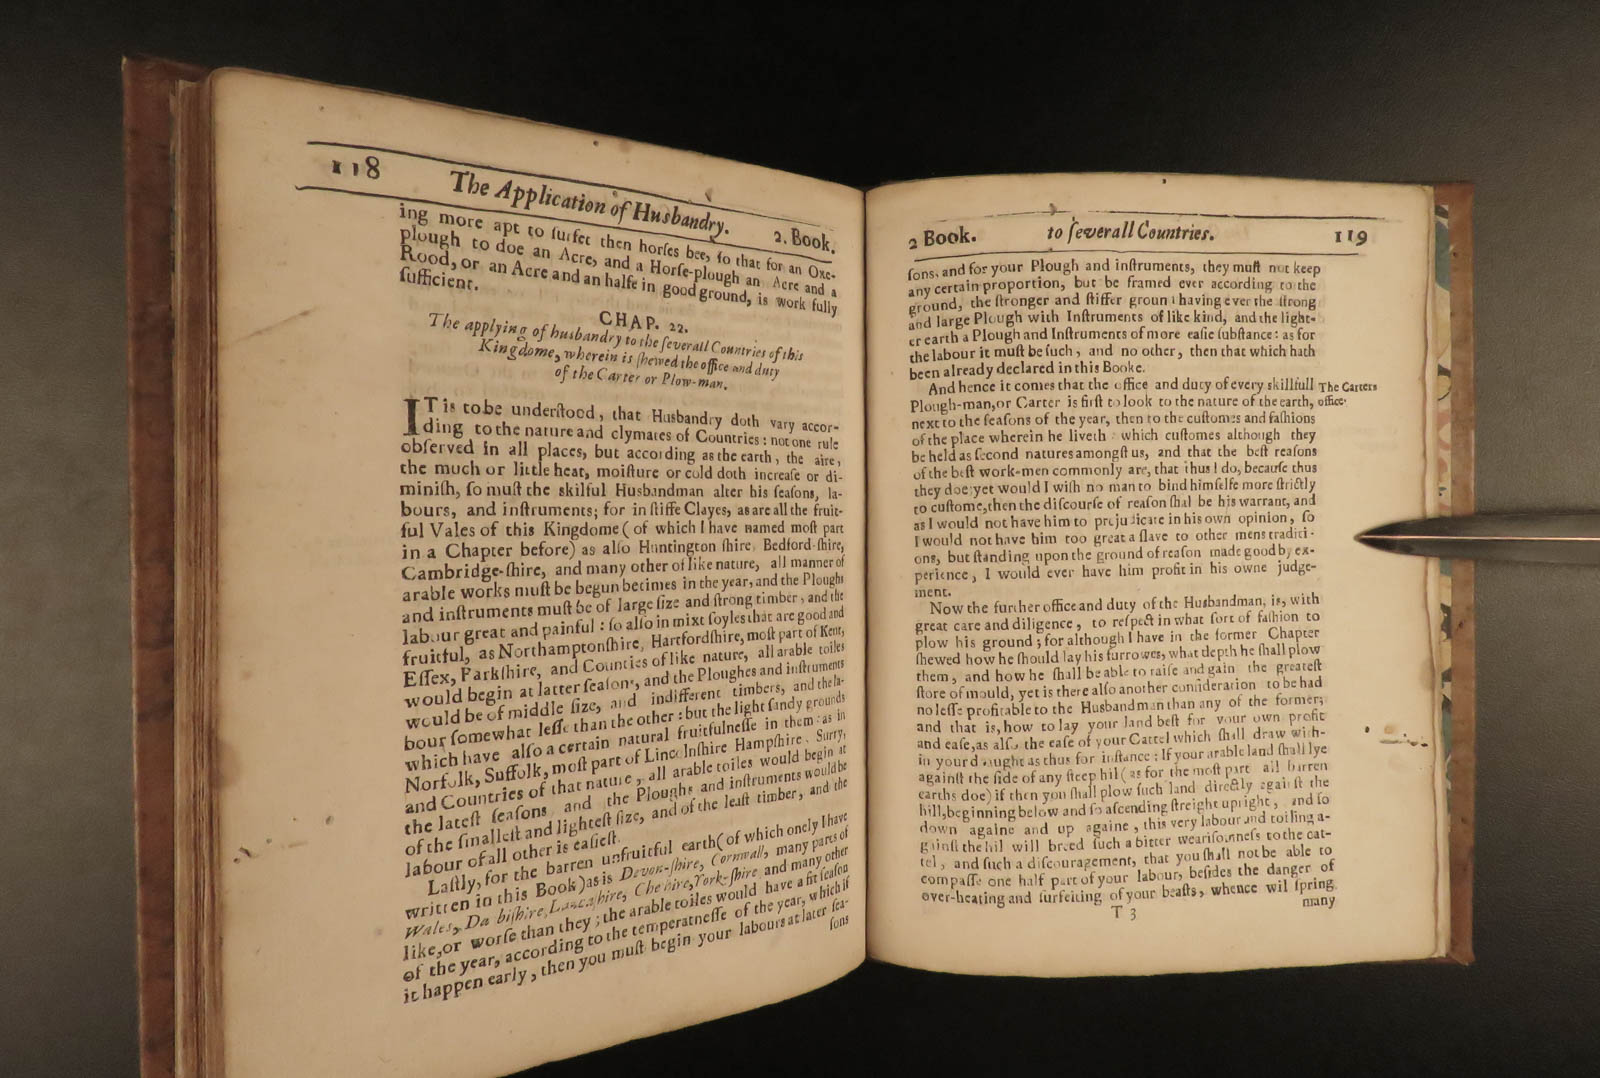 118 The Application of Husbandry. 2. Book.
ing more apt to ſurfet then horſes bee, ſo that for an Oxe-
plough to doe an Acre, and a Horſe-plough an Acre and a
Rood, or an Acre and an halfe in good ground, is work fully
ſufficient.
CHAP. 22.
The applying of husbandry to the ſeverall Countries of this
Kingdome, wherein is ſhewed the office and duty
of the Carter or Plow-man.
IT is to be underſtood, that Husbandry doth vary accor-
ding to the nature and clymates of Countries: not one rule
obſerved in all places, but according as the earth, the aire,
the much or little heat, moiſture or cold doth increaſe or di-
miniſh, ſo muſt the skilful Husbandman alter his ſeaſons, la-
bours, and inſtruments; for in ſtiffe Clayes, as are all the fruit-
ful Vales of this Kingdome (of which I have named moſt part
in a Chapter before) as alſo Huntington ſhire, Bedford-ſhire,
Cambridge-ſhire, and many other of like nature, all manner of
arable works muſt be begun betimes in the year, and the Ploughs
and inſtruments muſt be of large ſize and ſtrong timber, and the
labour great and painful: ſo alſo in mixt ſoyles that are good and
fruitful, as Northamptonſhire, Hartfordſhire, moſt part of Kent,
Eſſex, Parkſhire, and Counties of like nature, all arable toiles
would begin at latter ſeaſons, and the Ploughes and inſtruments
would be of middle ſize, and indifferent timbers, and the la-
bour ſomewhat leſſe than the other: but the light ſandy grounds
which have alſo a certain natural fruitfulneſſe in them: as in
Norfolk, Suffolk, moſt part of Lincolnſhire Hampſhire, Surry,
and Countries of that nature, all arable toiles would begin at
the lateſt ſeaſons and the Ploughs and inſtruments would be
of the ſmalleſt and lighteſt ſize, and of the leaſt timber, and the
labour of all other is eaſieſt.
Laſtly, for the barren unfruitful earth (of which onely I have
written in this Book) as is Devon-ſhire, Cornwall, many parts of
Wales, Da biſhire, Lancaſhire, Che hire, York-ſhire and many other
like, or worſe than they; the arable toiles would have a fit ſeaſon
of the year, according to the temperatneſſe of the year, which if
it happen early, then you muſt begin your labours at later ſea-
ſons
2 Book. to ſeverall Countries. 119
ſons, and for your Plough and inſtruments, they muſt not keep
any certain proportion, but be framed ever according to the
ground, the ſtronger and ſtiffer ground having ever the ſtrong
and large Plough with Inſtruments of like kind, and the light-
er earth a Plough and Inſtruments of more eaſie ſubſtance: as for
the labour it muſt be ſuch, and no other, then that which hath
been already declared in this Booke.
And hence it comes that the office and duty of every skillfull The Carters
Plough-man, or Carter is firſt to look to the nature of the earth, office.
next to the ſeaſons of the year, then to the cuſtomes and faſhions
of the place wherein he liveth: which cuſtomes although they
be held as ſecond natures amongſt us, and that the beſt reaſons
of the beſt work-men commonly are, that thus I do, becauſe thus
they doe: yet would I wiſh no man to bind himſelfe more ſtrictly
to cuſtome, then the diſcourſe of reaſon ſhal be his warrant, and
as I would not have him to prejudicate in his own opinion, ſo
I would not have him too great a ſlave to other mens traditi-
ons, but ſtanding upon the ground of reaſon made good by ex-
perience, I would ever have him profit in his owne judge-
ment.
Now the further office and duty of the Husbandman, is, with
great care and diligence, to reſpect in what ſort of faſhion to
plow his ground; for although I have in the former Chapter
ſhewed how he ſhould lay his furrowes, what depth he ſhall plow
them, and how he ſhall be able to raiſe and gain the greateſt
ſtore of mould, yet is there alſo another conſideration to be had
no leſſe profitable to the Husbandman than any of the former;
and that is, how to lay your land beſt for your own profit
and eaſe, as alſo the eaſe of your Cattel which ſhall draw with-
in your draught as thus for inſtance: If your arable land ſhall lye
againſt the ſide of any ſteep hil (as for the moſt part all barren
earths doe) if then you ſhall plow ſuch land directly againſt the
hill, beginning below and ſo aſcending ſtreight upright, and ſo
down againe and up againe, this very labour and toiling a-
gainſt the hil will breed ſuch a bitter weariſomneſs to the cat-
tel, and ſuch a diſcouragement, that you ſhall not be able to
compaſſe one half part of your labour, beſides the danger of
over-heating and ſurfeiting of your beaſts, whence wil ſpring
T 3 many